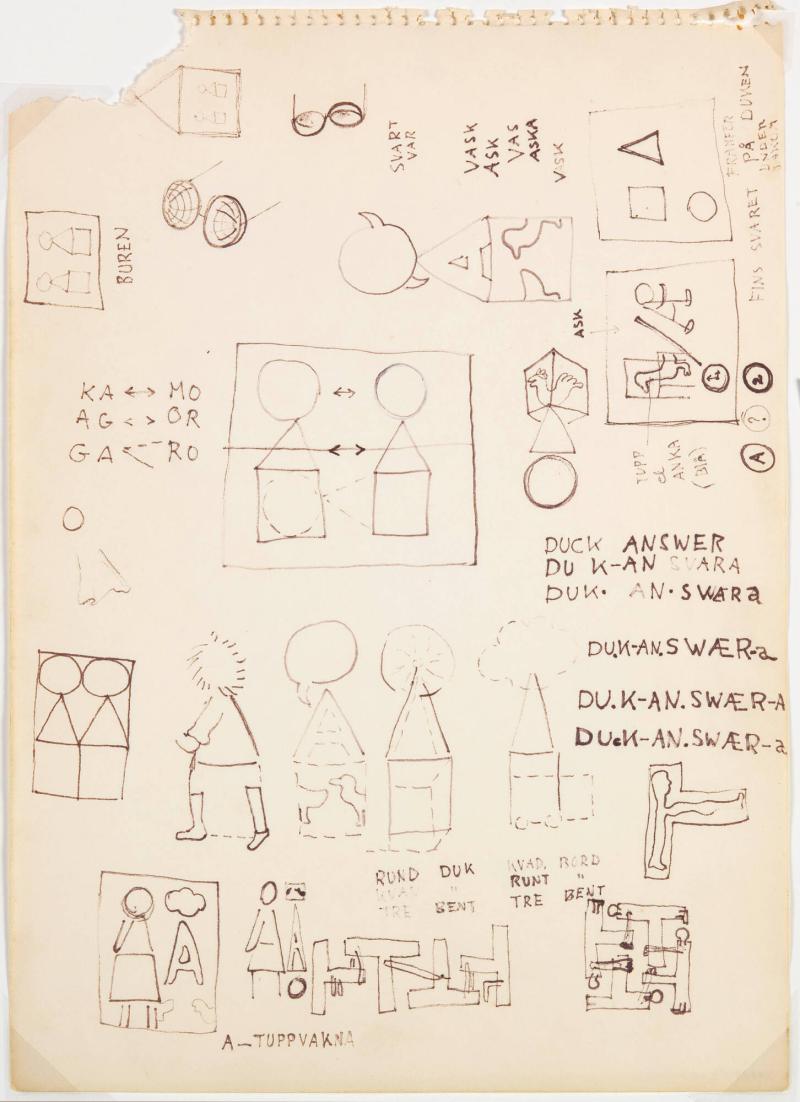 SVART
VAR
VASK
ASK
VAS
ASKA
VASK
FRAMFÖR
PÅ DUKEN
UNDER
FINS SVARET
BUREN
ASK
KA ↔ MO
AG <> OR
GA RO
1
A ? 2
TUPP
el
ANKA
(BLÅ)
DUCK ANSWER
DU K-AN SVARA
DUK· AN·SWÆRa
DU.K-AN.SWÆR-a
DU.K-AN.SWÆR-A
DUcK-AN.SWÆR-a
RUND DUK
KVAD. "
TRE BENT
KVAD. BORD
RUNT "
TRE BENT
A
A
A—TUPPVAKNA